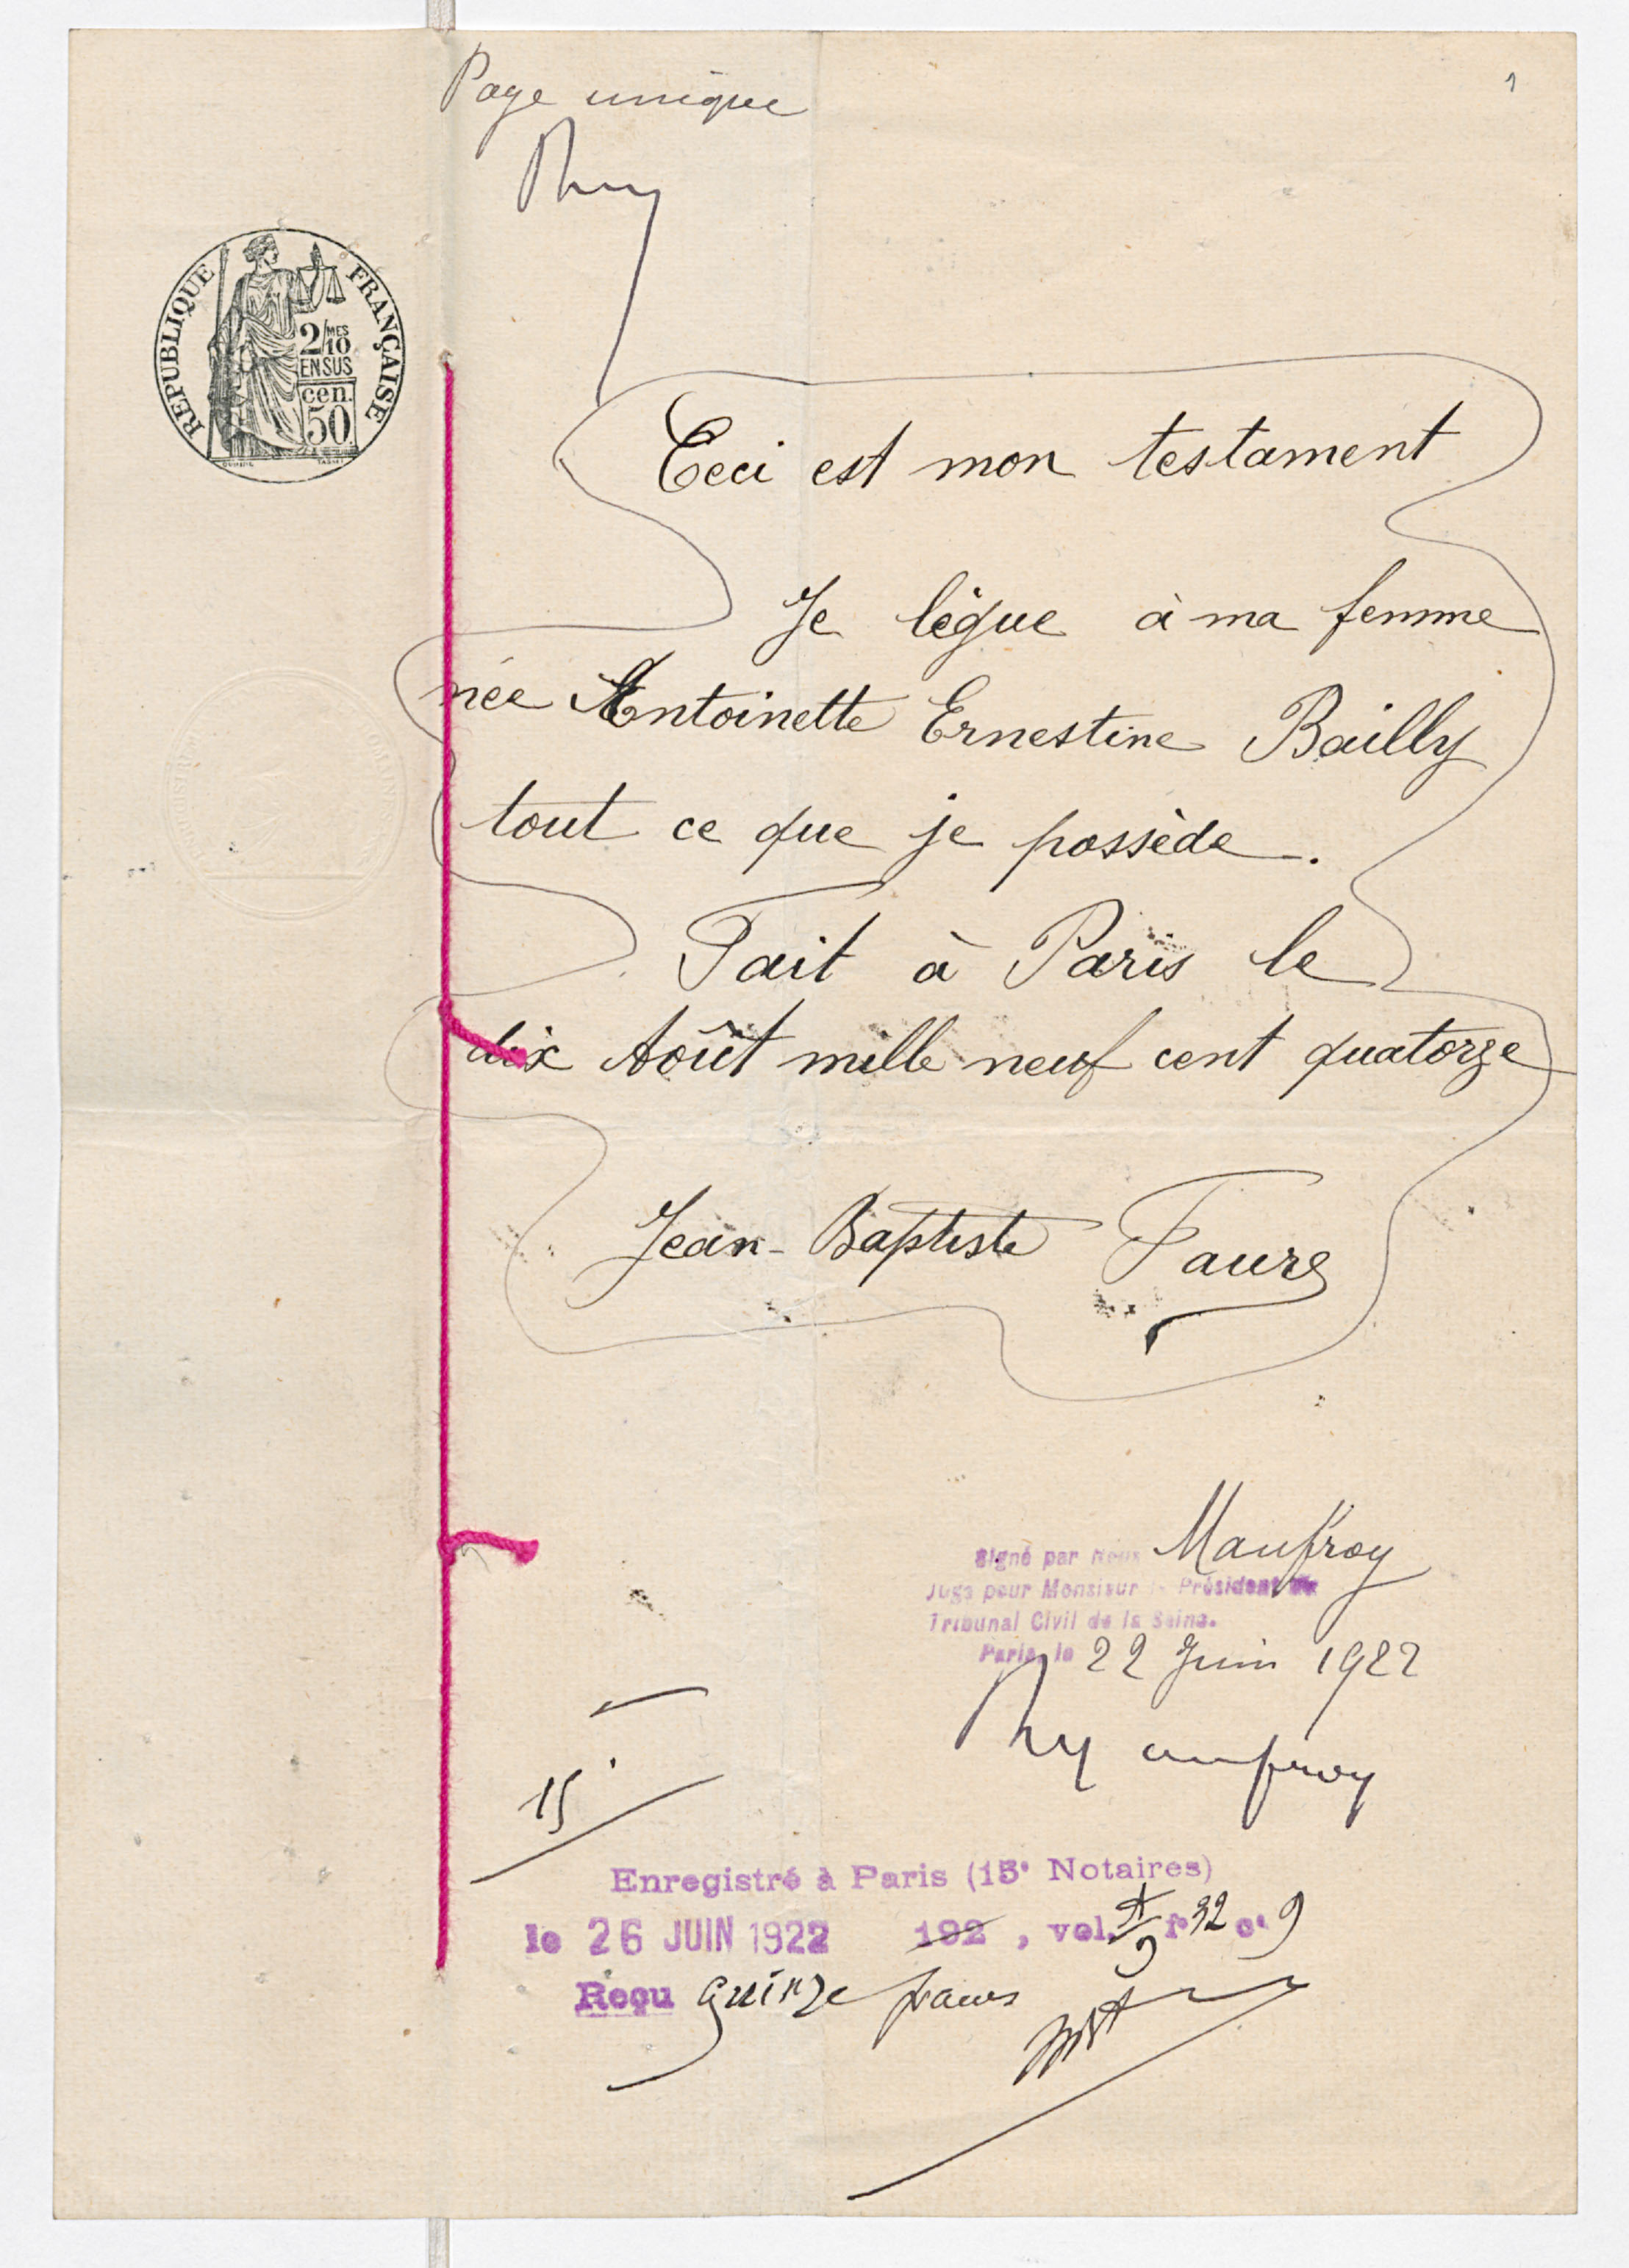 Page unique
1
REPUBLIQUE FRANÇAISE
2/10 MES
EN SUS
cen.
50
Ceci est mon testament
Je lègue à ma femme
née Antoinette Ernestine Bailly
tout ce que je possède.
Fait à Paris le
dix Août mille neuf cent quatorze
Jean-Baptiste Faure
Signé par Nous Maufroy
Juge pour Monsieur le Président du
Tribunal Civil de la Seine.
Paris, le 22 Juin 1922
Maufroy
15
Enregistré à Paris (15e Notaires)
le 26 JUIN 1922 192 , vol. fo 32 ce 9
Reçu quinze francs